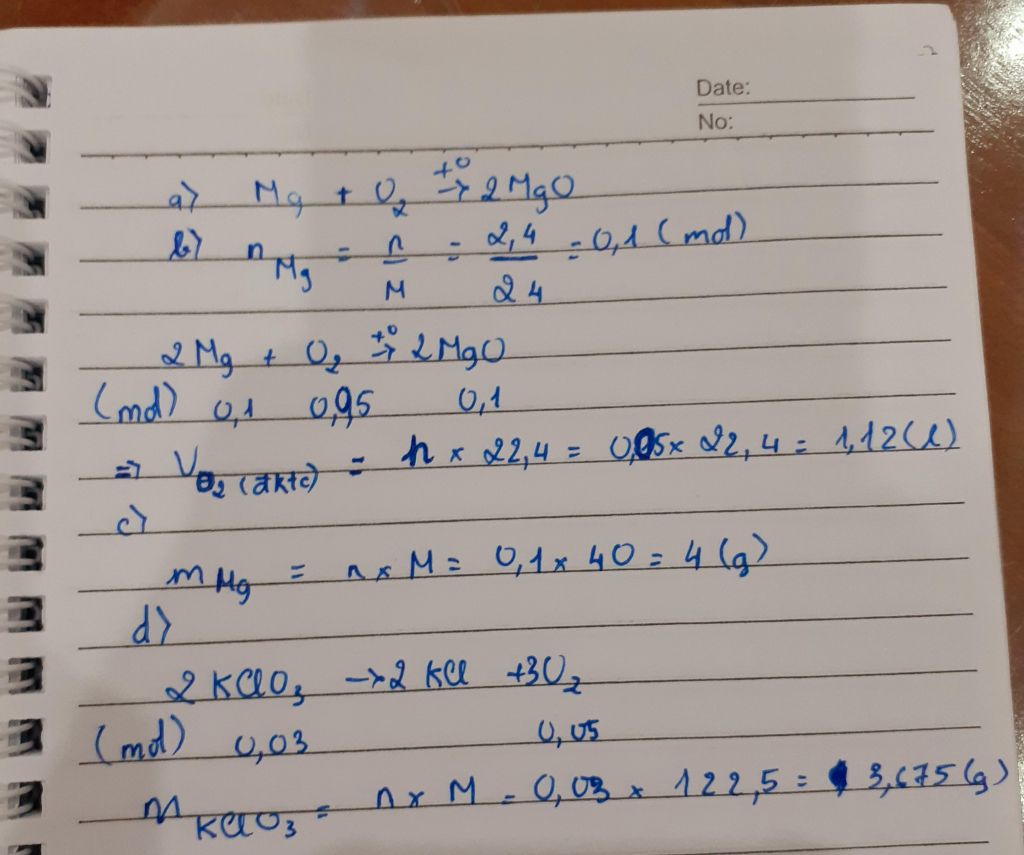 Date:
No:
a) Mg + O₂ →(t°) 2MgO
b) n Mg = n/M = 2,4/24 = 0,1 (mol)
2Mg + O₂ →(t°) 2MgO
(mol) 0,1 0,05 0,1
=> V O₂ (đktc) = n × 22,4 = 0,05 × 22,4 = 1,12 (l)
c)
m Mg = n × M = 0,1 × 40 = 4 (g)
d)
2KClO₃ → 2KCl + 3O₂
(mol) 0,03 0,05
m KClO₃ = n × M = 0,03 × 122,5 = 3,675 (g)